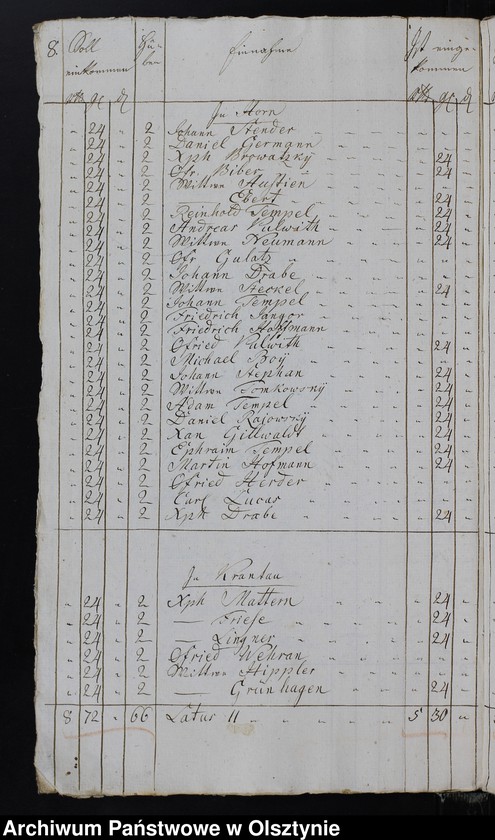 8. Soll einkommen Huben Einnahme Ist eingekommen
rth gl d rth gl d
In Horn
" 24 " 2 Johann Stender " " "
" 24 " 2 Daniel Germann " " "
" 24 " 2 Xph Browatzky " 24 "
" 24 " 2 Gfr. Biber " 24 "
" 24 " 2 Wittwe Austien
" 24 " 2 — Ebert " 24 "
" 24 " 2 Reinhold Tempel " 24 "
" 24 " 2 Andreas Valwith " 24 "
" 24 " 2 Wittwe Neumann " 24 "
" 24 " 2 Gfr Gulatz " " "
" 24 " 2 Johann Drabe " " "
" 24 " 2 Wittwe Steckel " 24 "
" 24 " 2 Johann Tempel " " "
" 24 " 2 Friedrich Sangor " " "
" 24 " 2 Friedrich Hoffmann " " "
" 24 " 2 Gfried Valwith " 24 "
" 24 " 2 Michael Boÿ " " "
" 24 " 2 Johann Stephan " 24 "
" 24 " 2 Wittwe Tomkowsky " 24 "
" 24 " 2 Adam Tempel " 24 "
" 24 " 2 Daniel Rajowsky " 24 "
" 24 " 2 Xan Gillwaldt " 24 "
" 24 " 2 Ephraim Tempel " 24 "
" 24 " 2 Martin Hofmann " 24 "
" 24 " 2 Gfried Herder " " "
" 24 " 2 Carl Lucas " " "
" 24 " 2 Xph Drabe " 24 "
In Krantau
" 24 " 2 Xph Mattern " 24 "
" 24 " 2 — Friese " 24 "
" 24 " 2 — Lingner " 24 "
" 24 " 2 Gfried Wehran " " "
" 24 " 2 Wittwe Hippler " " "
" 24 " 2 — Grünhagen " 24 "
8 72 " 66 Latus 11 5 30 "
Archiwum Państwowe w Olsztynie